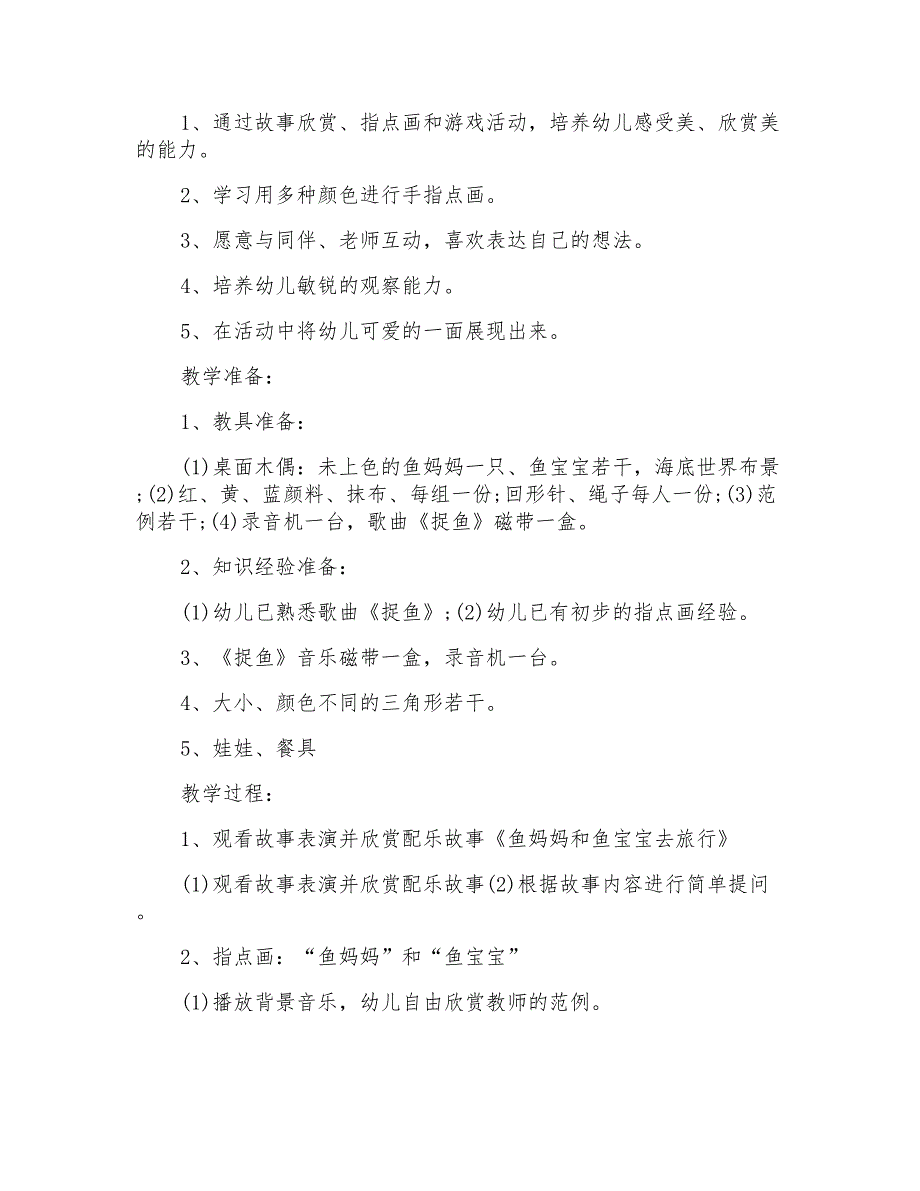 1、通过故事欣赏、指点画和游戏活动，培养幼儿感受美、欣赏美
的能力。
2、学习用多种颜色进行手指点画。
3、愿意与同伴、老师互动，喜欢表达自己的想法。
4、培养幼儿敏锐的观察能力。
5、在活动中将幼儿可爱的一面展现出来。
教学准备：
1、教具准备：
(1)桌面木偶：未上色的鱼妈妈一只、鱼宝宝若干，海底世界布景
;(2)红、黄、蓝颜料、抹布、每组一份;回形针、绳子每人一份;(3)范
例若干;(4)录音机一台，歌曲《捉鱼》磁带一盒。
2、知识经验准备：
(1)幼儿已熟悉歌曲《捉鱼》;(2)幼儿已有初步的指点画经验。
3、《捉鱼》音乐磁带一盒，录音机一台。
4、大小、颜色不同的三角形若干。
5、娃娃、餐具
教学过程：
1、观看故事表演并欣赏配乐故事《鱼妈妈和鱼宝宝去旅行》
(1)观看故事表演并欣赏配乐故事(2)根据故事内容进行简单提问
。
2、指点画：“鱼妈妈”和“鱼宝宝”
(1)播放背景音乐，幼儿自由欣赏教师的范例。